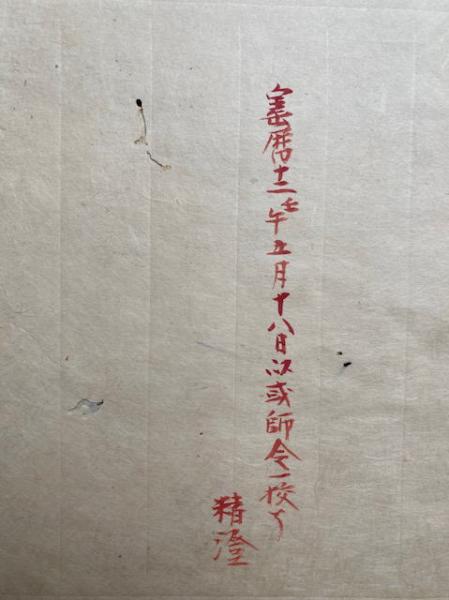 宝暦十二壬午五月十八日以或師令一校了
精澄